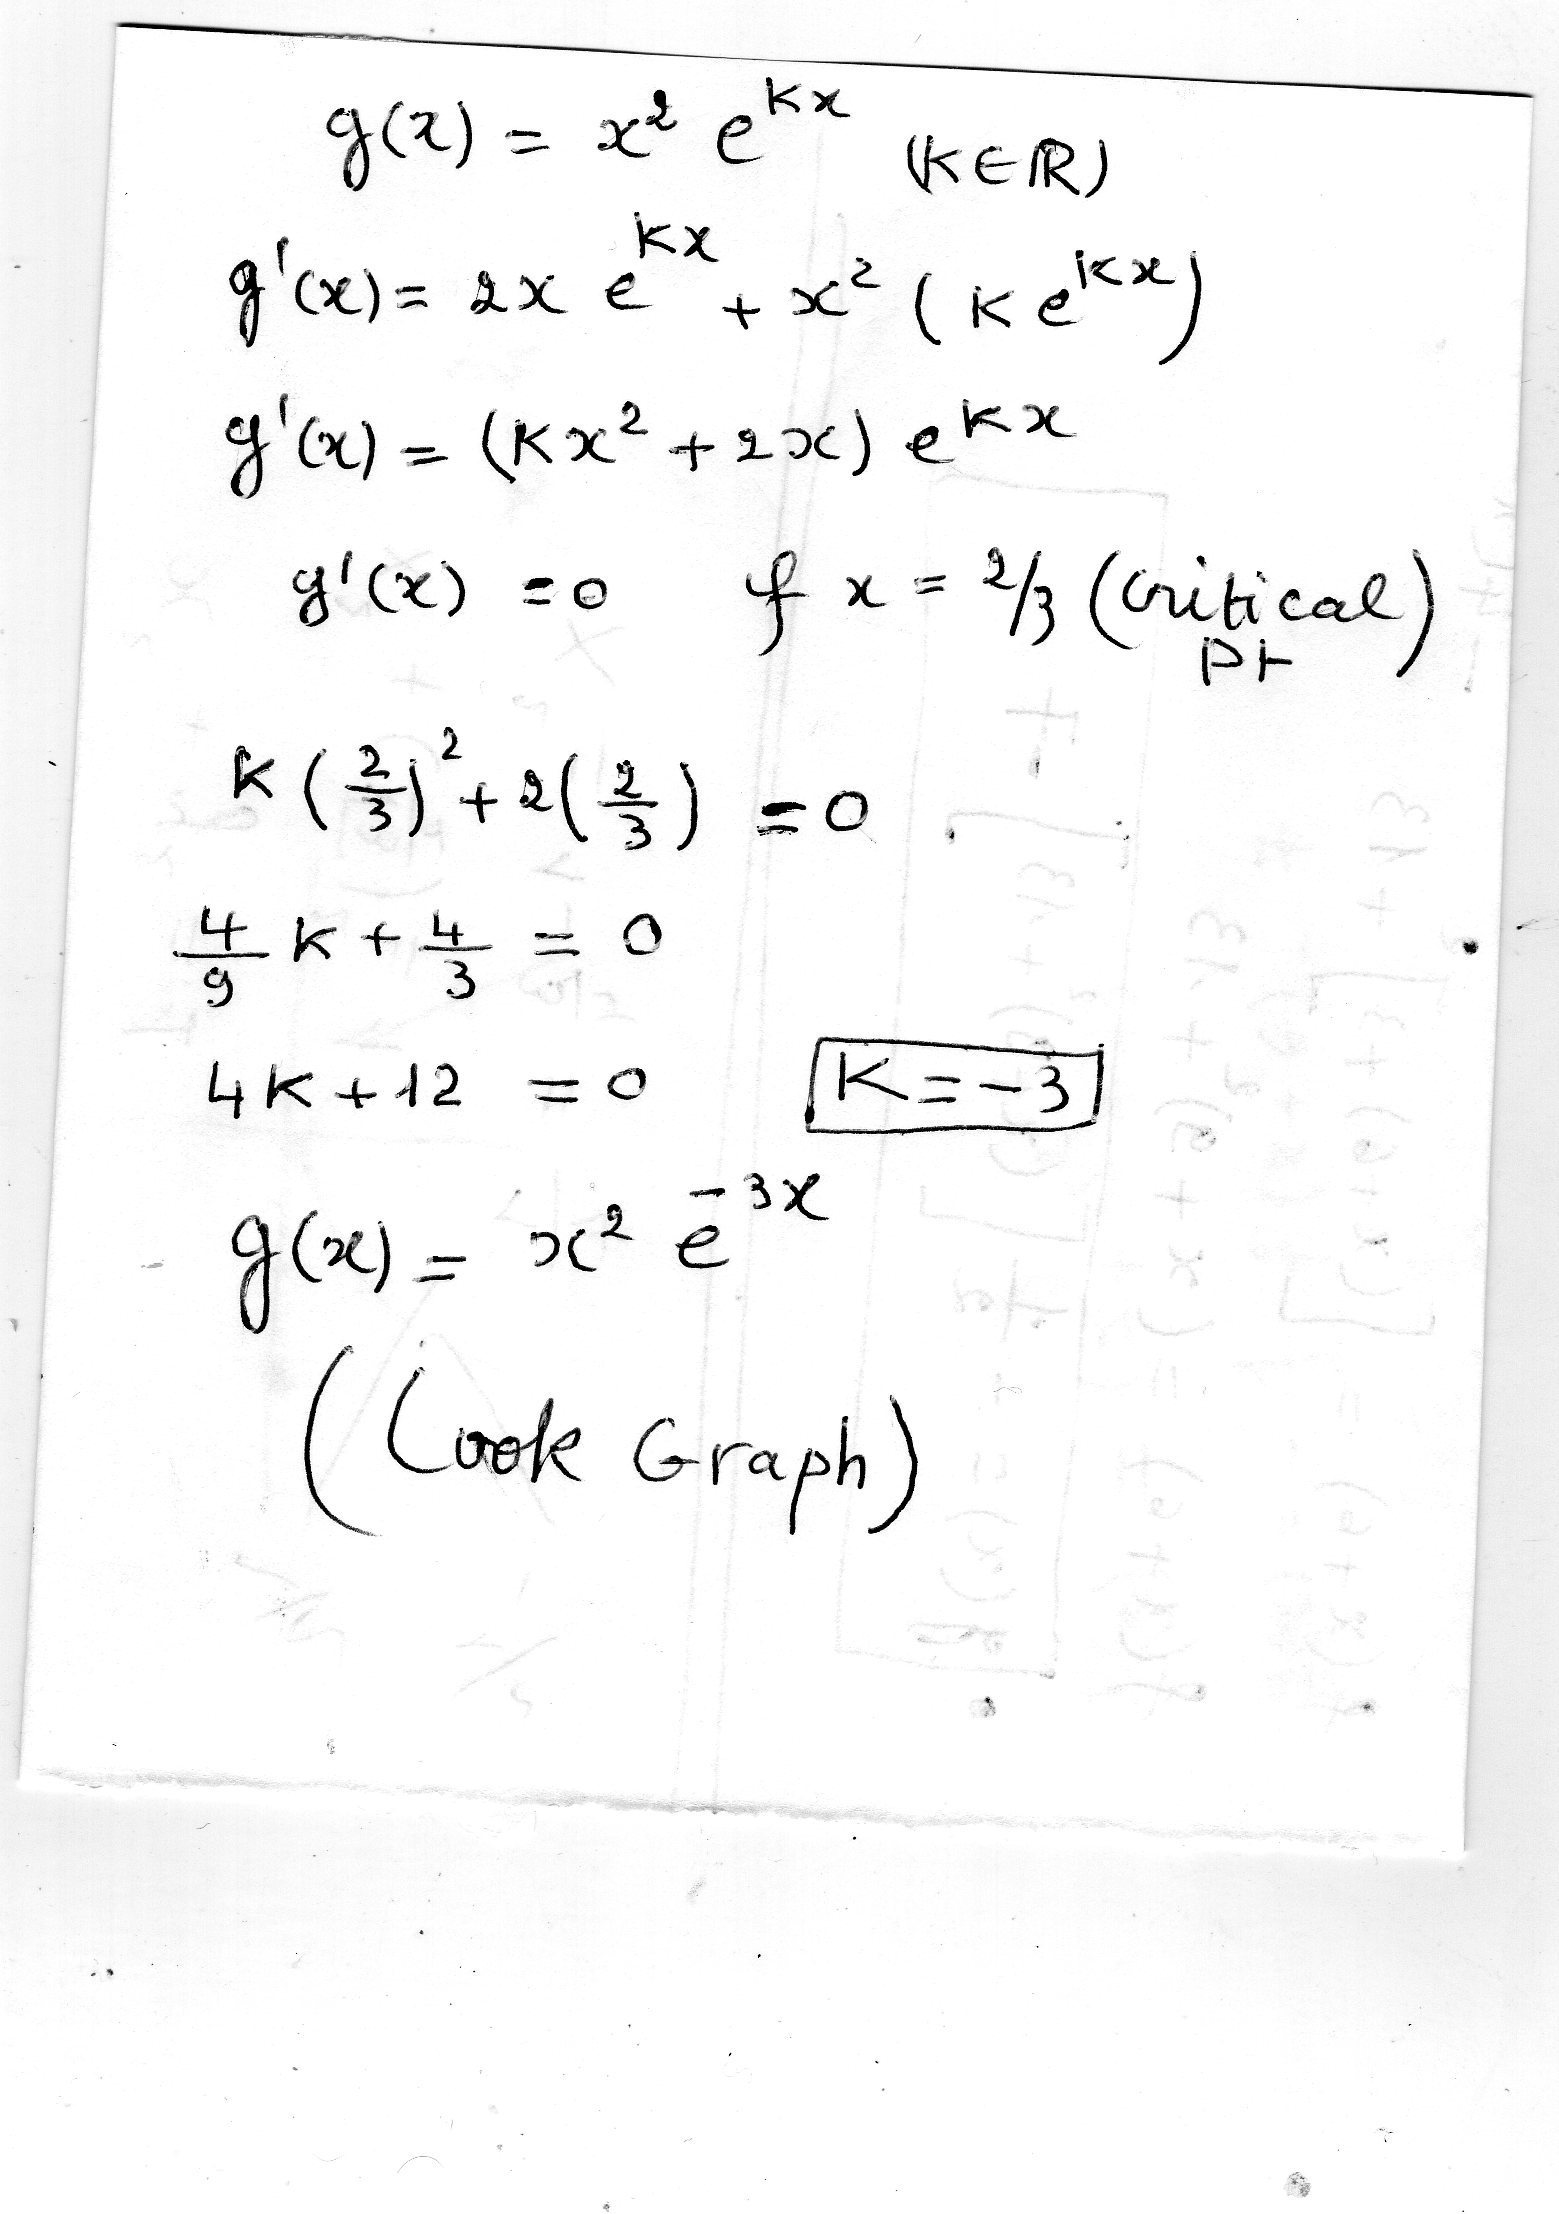 g(x) = x² e^{kx} (k∈ℝ)
g'(x) = 2x e^{kx} + x² (k e^{kx})
g'(x) = (kx² + 2x) e^{kx}
g'(x) = 0 if x = 2/3 (critical pt)
k(2/3)² + 2(2/3) = 0
4/9 k + 4/3 = 0
4k + 12 = 0 k = -3
g(x) = x² e^{-3x}
(Look Graph)